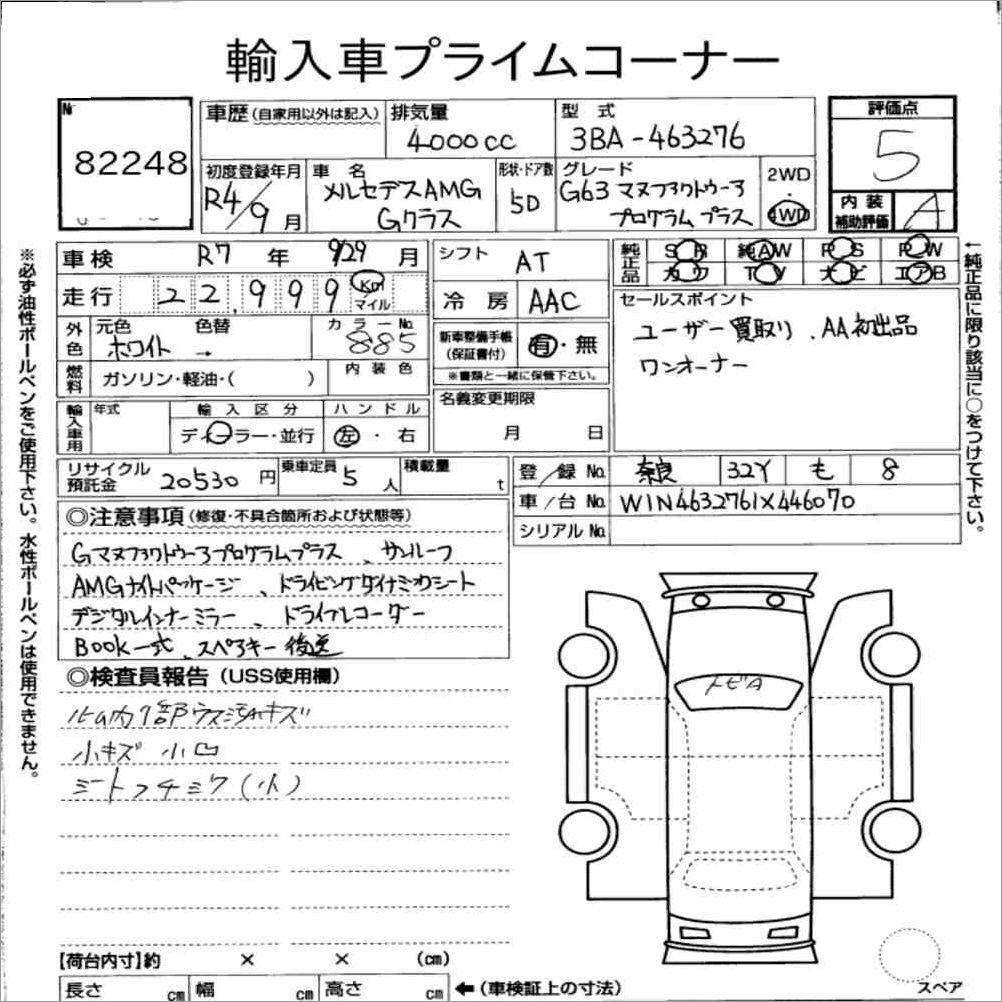 輸入車プライムコーナー
No
82248
車歴(自家用以外は記入)
排気量
4000cc
型式
3BA-463276
評価点
5
初度登録年月
R4/9月
車名
メルセデスAMG
Gクラス
形状・ドア数
5D
グレード
G63 マヌファクトゥーラ
プログラム プラス
2WD
・
4WD
内装
補助評価
A
車検 R7年 9/29月
シフト AT
純正品
SR 純AW PS PW
カワ TV ナビ エアB
走行 22,999 Km
マイル
冷房 AAC
セールスポイント
ユーザー買取り、AA初出品
ワンオーナー
外色
元色 色替
ホワイト →
カラーNo.
885
新車整備手帳
(保証書付)
有・無
※書類と一緒に保管下さい。
燃料
ガソリン・軽油・( )
内装色
名義変更期限
月 日
輸入車用
年式
輸入区分
ディーラー・並行
ハンドル
左・右
リサイクル
預託金
20530円
乗車定員 5人
積載量 t
登/録No. 奈良 32Y も 8
車/台No. W1N4632761X446070
シリアルNo.
◎注意事項(修復・不具合箇所および状態等)
Gマヌファクトゥーラプログラムプラス、サンルーフ
AMGナイトパッケージ、ドライビングダイナミックシート
デジタルインナーミラー、ドライブレコーダー
BOOK一式、スペアキー後送
◎検査員報告(USS使用欄)
小キズ 小凹
トビA
【荷台内寸】約 × × (cm)
長さ cm 幅 cm 高さ cm
←(車検証上の寸法)
スペア
※必ず油性ボールペンをご使用下さい。水性ボールペンは使用できません。
←純正品に限り該当に○をつけて下さい。